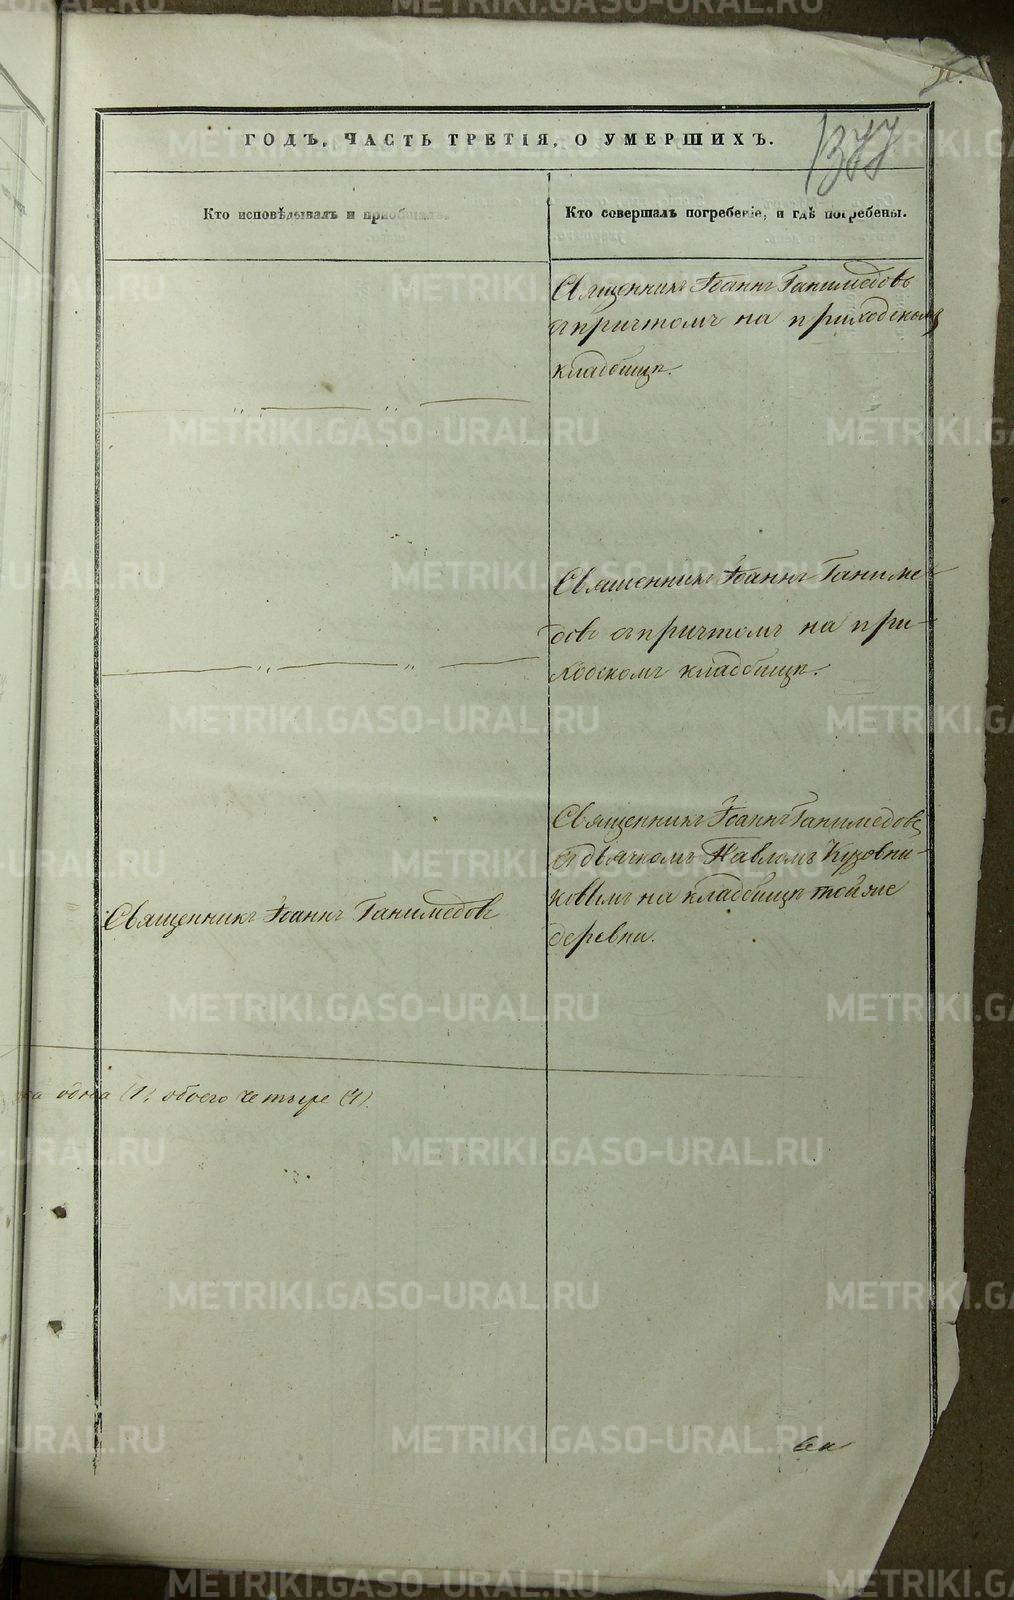 377
ГОДЪ, ЧАСТЬ ТРЕТІЯ, О УМЕРШИХЪ.
Кто исповѣдывалъ и приобщалъ.
Кто совершалъ погребеніе, и гдѣ погребены.
Священникъ Іоаннъ Ганимедовъ
съ причтомъ на приходскомъ
кладбищѣ.
Священникъ Іоаннъ Ганиме-
довъ съ причтомъ на при-
ходскомъ кладбищѣ.
Священникъ Іоаннъ Ганимедовъ
Священникъ Іоаннъ Ганимедовъ
съ дьячкомъ Павломъ Кузовни-
ковымъ на кладбищѣ той же
деревни.
одна (1), обоего четыре (4).
METRIKI.GASO-URAL.RU